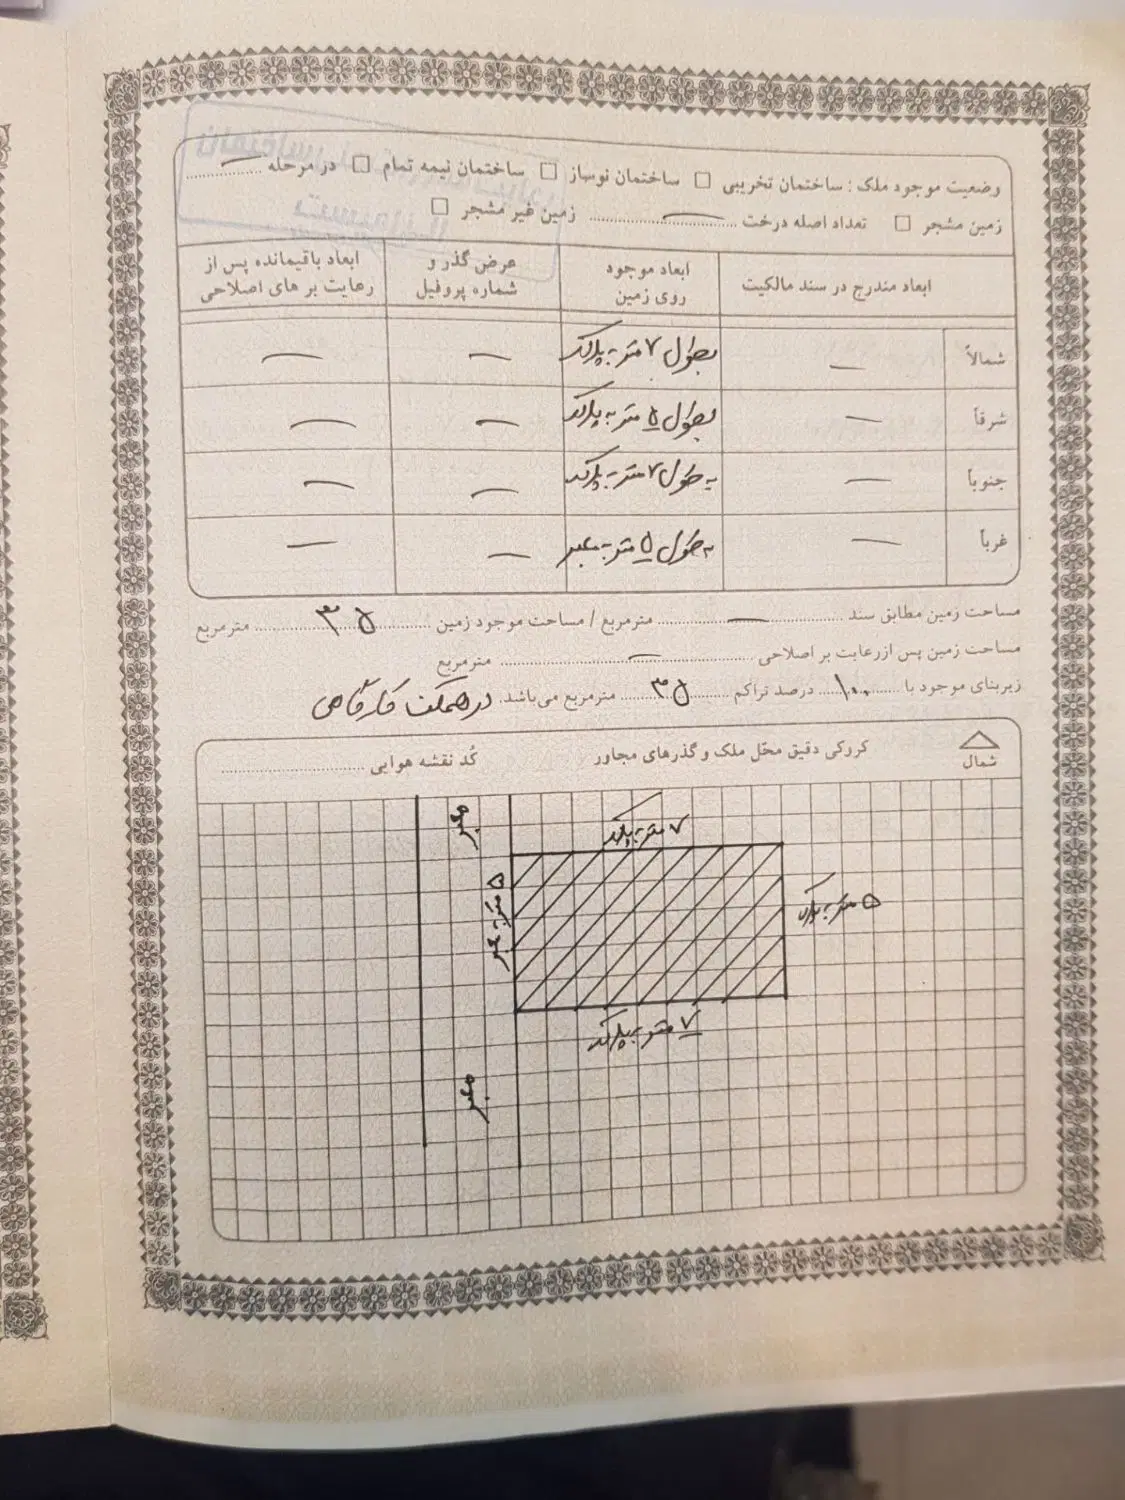 وضعیت موجود ملک : ساختمان تخریبی □ ساختمان نوساز □ ساختمان نیمه تمام □ در مرحله —
زمین مشجر □ تعداد اصله درخت — زمین غیر مشجر □
ابعاد مندرج در سند مالکیت | ابعاد موجود روی زمین | عرض گذر و شماره پروفیل | ابعاد باقیمانده پس از رعایت بر های اصلاحی
شمالاً — بطول ۷ متر به پلاک — —
شرقاً — بطول ۵ متر به پلاک — —
جنوباً — به طول ۷ متر به پلاک — —
غرباً — به طول ۵ متر به معبر — —
مساحت زمین مطابق سند — مترمربع / مساحت موجود زمین ۳۵ مترمربع
مساحت زمین پس ازرعایت بر اصلاحی — مترمربع
زیربنای موجود با ۱۰۰ درصد تراکم ۳۵ مترمربع می‌باشد. در همکف
شمال کروکی دقیق محل ملک و گذرهای مجاور کُد نقشه هوایی
معبر
۷ متر به پلاک
۵ متر به معبر
۵ متر به پلاک
۷ متر به پلاک
معبر